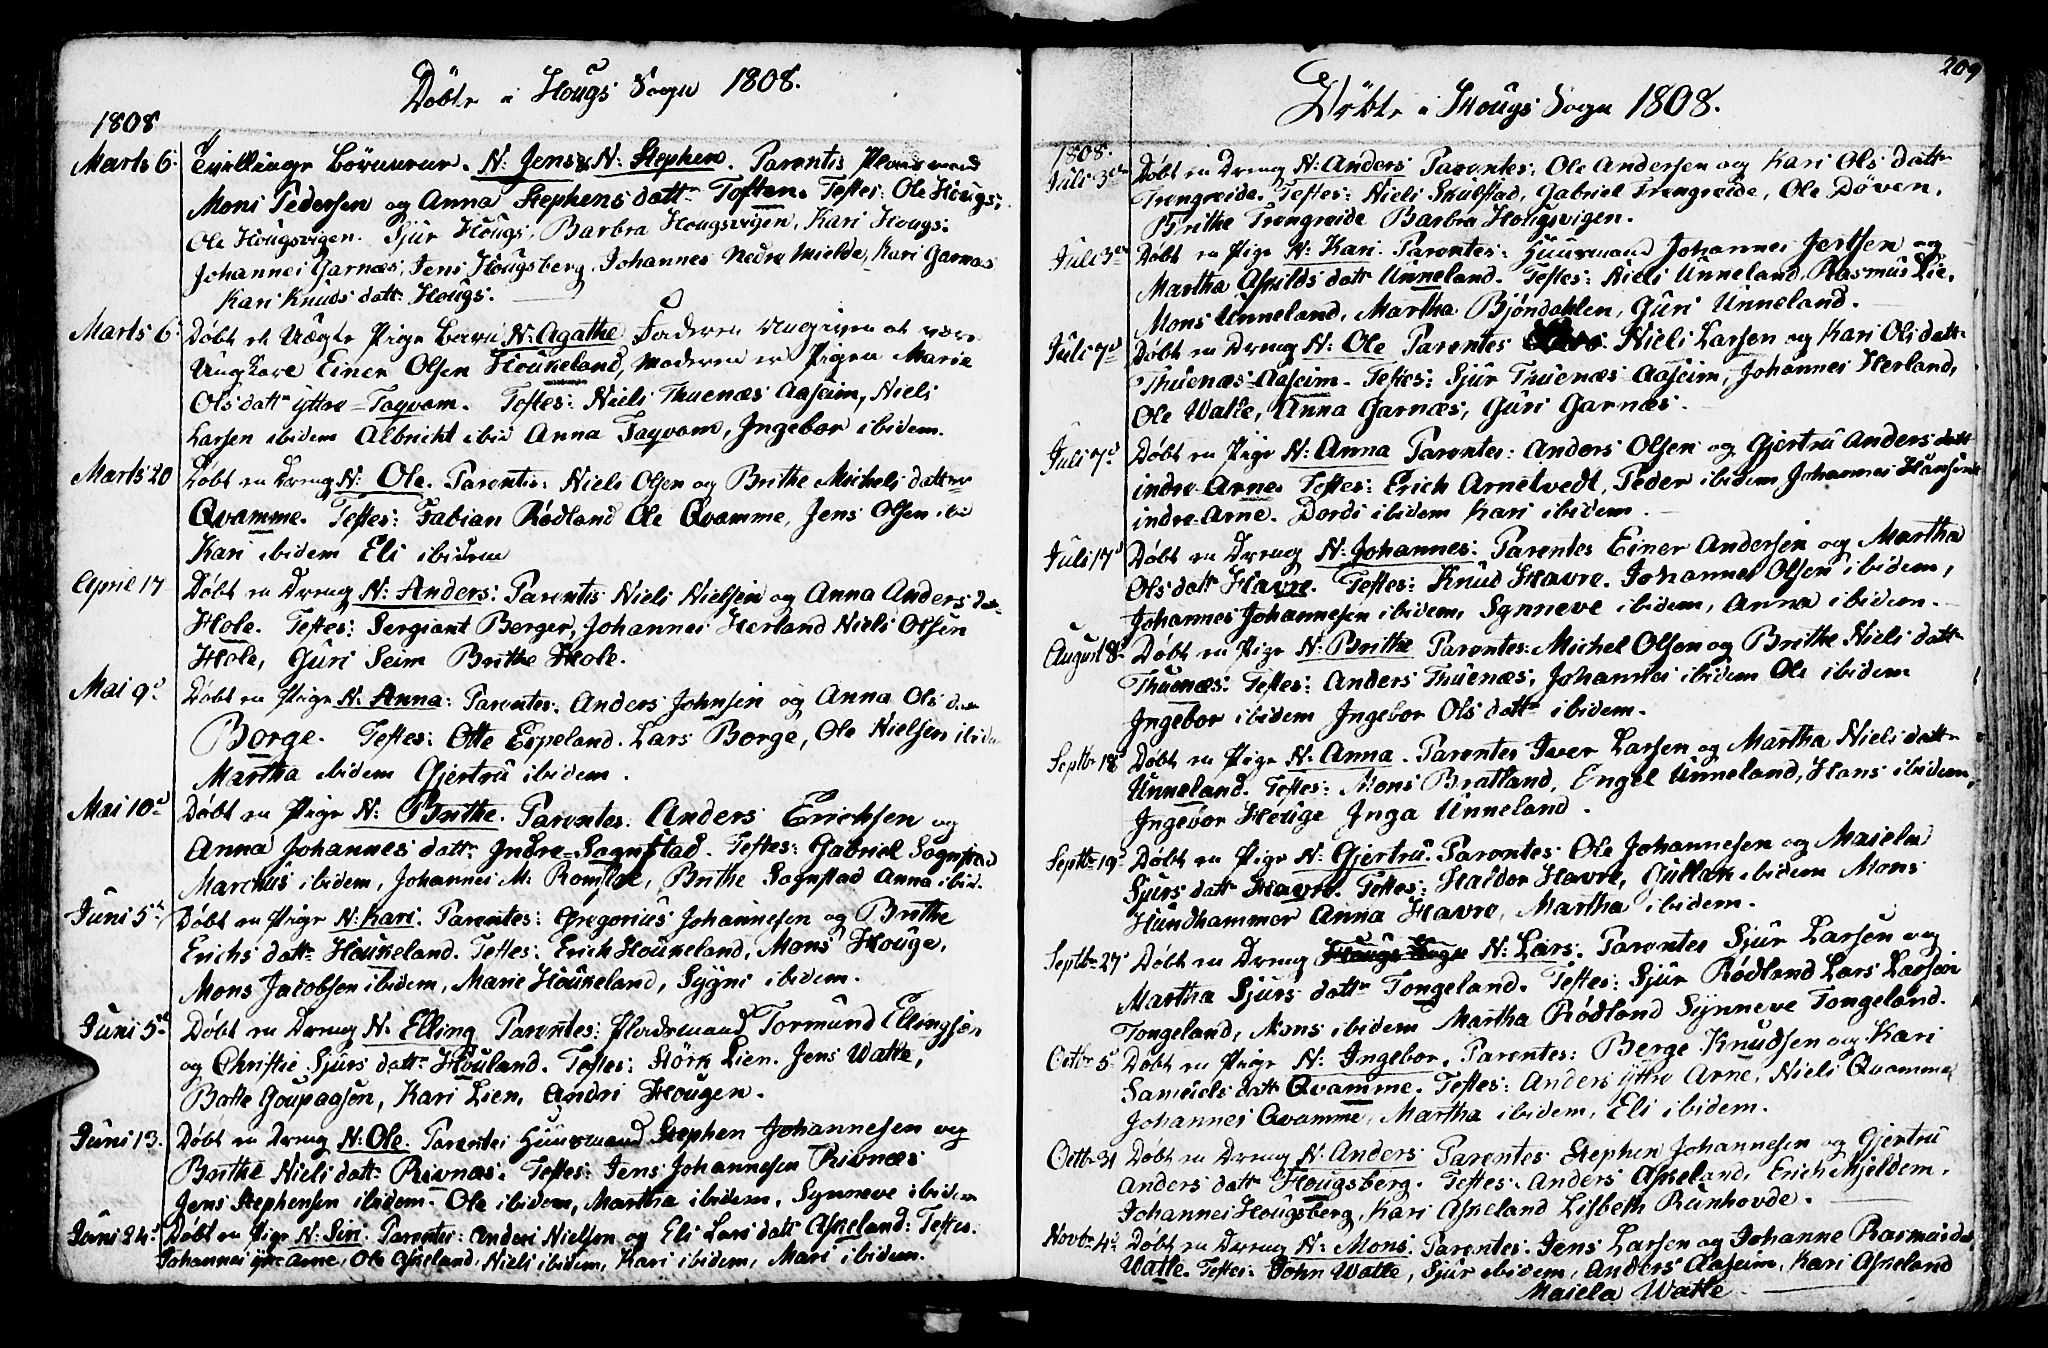 Døbte i Hougs Sogn 1808.
1808
Marts 6. Tvillinge Børn. N: Jens & N: Stephen. Parentes
Mons Pedersen og Anna Stephens datt: Toften. Testes: Ole Hougs,
Ole Hougsvigen. Sjur Hougs, Barbra Hougsvigen, Kari Hougs.
Johannes Garnæs, Jens Hougsberg, Johannes Nedre Mielde, Kari Garnæs
Kari Knuds datt: Hougs.
Marts 6. Døbt et Uægte Pige barn N: Agathe Faderen Angiven at være
Ung Kare Einer Olsen Houkeland, Moderen er Pigen Marie
Ols datt: yttre-Tagvam. Testes: Niels Thuenæs Aaseim, Niels
Larsen ibidem Albrickt ibid Anna Tagvam, Ingebor ibidem.
Marts 20 Døbt en Dreng N: Ole. Parentes: Niels Olsen og Brithe Michels datter
Qvamme. Testes: Fabian Rødland Ole Qvamme, Jens Olsen ibid
Kari ibidem Eli ibidem
April 17 Døbt en Dreng N: Anders: Parentes Niels Nielsen og Anna Anders dat
Hole. Testes: Sergiant Berger, Johannes Herland Niels Olsen
Hole, Guri Seim Brithe Hole.
Mai 9d Døbt en Pige N: Anna: Parentes: Anders Johnsen og Anna Ols dat
Borge. Testes: Otte Espeland. Lars Borge, Ole Nielsen ibid
Martha ibidem Gjertru ibidem.
Mai 10d Døbt en Pige N: Brithe. Parentes: Anders Ericksen og
Anna Johannes datt: Indre-Sognstad. Testes: Gabriel Sognstad
Marchus ibidem, Johannes M: Romsloe, Brithe Sognstad Anna ibid.
Juni 5d Døbt en Pige N: Kari. Parentes: Gregorius Johannesen og Brithe
Erichs datt: Houkeland. Testes: Erich Houkeland, Mons Houge,
Mons Jacobsen ibidem, Marie Houkeland, Sygni ibidem.
Juni 5d Døbt en Dreng N: Elling Parentes: Tormund Ellingsen
og Christie Sjurs datt: Houland. Testes: Störk Lien. Jens Watle,
Batle Goupaasen, Kari Lien, Andri Hougen.
Juni 13. Døbt en Dreng N: Ole. Parentes Huusmand Stephen Johannesen og
Brithe Niels datt: Rivnæs. Testes: Jens Johannesen Rivnæs
Jens Stephensen ibidem. Ole ibidem, Martha ibidem, Synneve ibidem
Juni 24d Døbt en Pige N: Siri. Parentes: Anders Nielsen og Eli Lars datt Askeland: Testes.
Johannes ytre Arne, Ole Askeland, Niels ibidem, Kari ibidem, Mari ibidem.
209
Døbte i Hougs Sogn 1808.
1808.
Juli 3de Døbt en Dreng N: Anders Parentes: Ole Andersen og Kari Ols datt:
Trengreide. Testes: Niels Skulstad, Gabriel Trengreide, Ole Döven,
Brithe Trengreide Barbra Hougsvigen.
Juli 3de Døbt en Pige N: Kari. Parentes: Huusmand Johannes Jertsen og
Martha Askilds datt Unneland. Testes: Niels Unneland, Rasmus Lie,
Mons Unneland, Martha Bjöndahlen, Guri Unneland.
Juli 7d Døbt en Dreng N: Ole Parentes Niels Larsen og Kari Ols datt:
Thuenæs-Aaseim. Testes: Sjur Thuenæs-Aaseim, Johannes Herland,
Ole Watle, Anna Garnæs, Guri Garnæs.
Juli 7d Døbt en Pige N: Anna Parentes: Anders Olsen og Gjertru Anders datt
indre-Arne. Testes: Erich Arnetvedt, Peder ibidem Johannes Hansen
indre-Arne. Dordi ibidem Kari ibidem.
Juli 17d Døbt en Dreng N: Johannes: Parentes Einer Andersen og Martha
Ols datt Havre. Testes: Knud Havre. Johannes Olsen ibidem,
Johannes Johannesen ibidem, Synneve ibidem, Anna ibidem.
August 8. Døbt en Pige N: Brithe Parentes: Michel Olsen og Brithe Niels datt
Thuenæs: Testes: Anders Thuenæs, Johannes ibidem Ole ibidem
Ingebor ibidem Ingebor Ols datt: ibidem.
Septbr 18d Døbt en Pige N: Anna. Parentes Iver Larsen og Martha Niels datt
Unneland. Testes: Mons Bratland, Engel Unneland, Hans ibidem,
Ingebor Houge Inga Unneland.
Septbr 19d Døbt en Pige N: Gjertru. Parentes Ole Johannesen og Maiela
Sjurs datt Havre. Testes: Haldor Havre, Gullak ibidem Mons
Hundhammer Anna Havre, Martha ibidem.
Septbr 27. Døbt en Dreng N: Lars. Parentes Sjur Larsen og
Martha Sjurs datt: Tongeland. Testes: Sjur Rødland Lars Larsen
Tongeland, Mons ibidem Martha Rødland Synneve Tongeland.
Octbr 5. Døbt en Pige N: Ingebor. Parentes: Berge Knudsen og Kari
Samuels datt Qvamme. Testes: Anders yttre Arne, Niels Qvamme,
Johannes Qvamme, Martha ibidem, Eli ibidem.
Octbr 31 Døbt en Dreng N: Anders Parentes Stephen Johannesen og Gjertru
Anders datt Hougsberg. Testes. Anders Askeland, Erich Hjeldem.
Johannes Hougsberg, Kari Askeland Lisbeth Runhovde.
Novbr 4d Døbt en Dreng N: Mons. Parentes: Jens Larsen og Johanne Rasmus dat
Watle. Testes: John Watle, Sjur ibidem, Anders Aaseim, Kari Askeland
Maiela Watle.